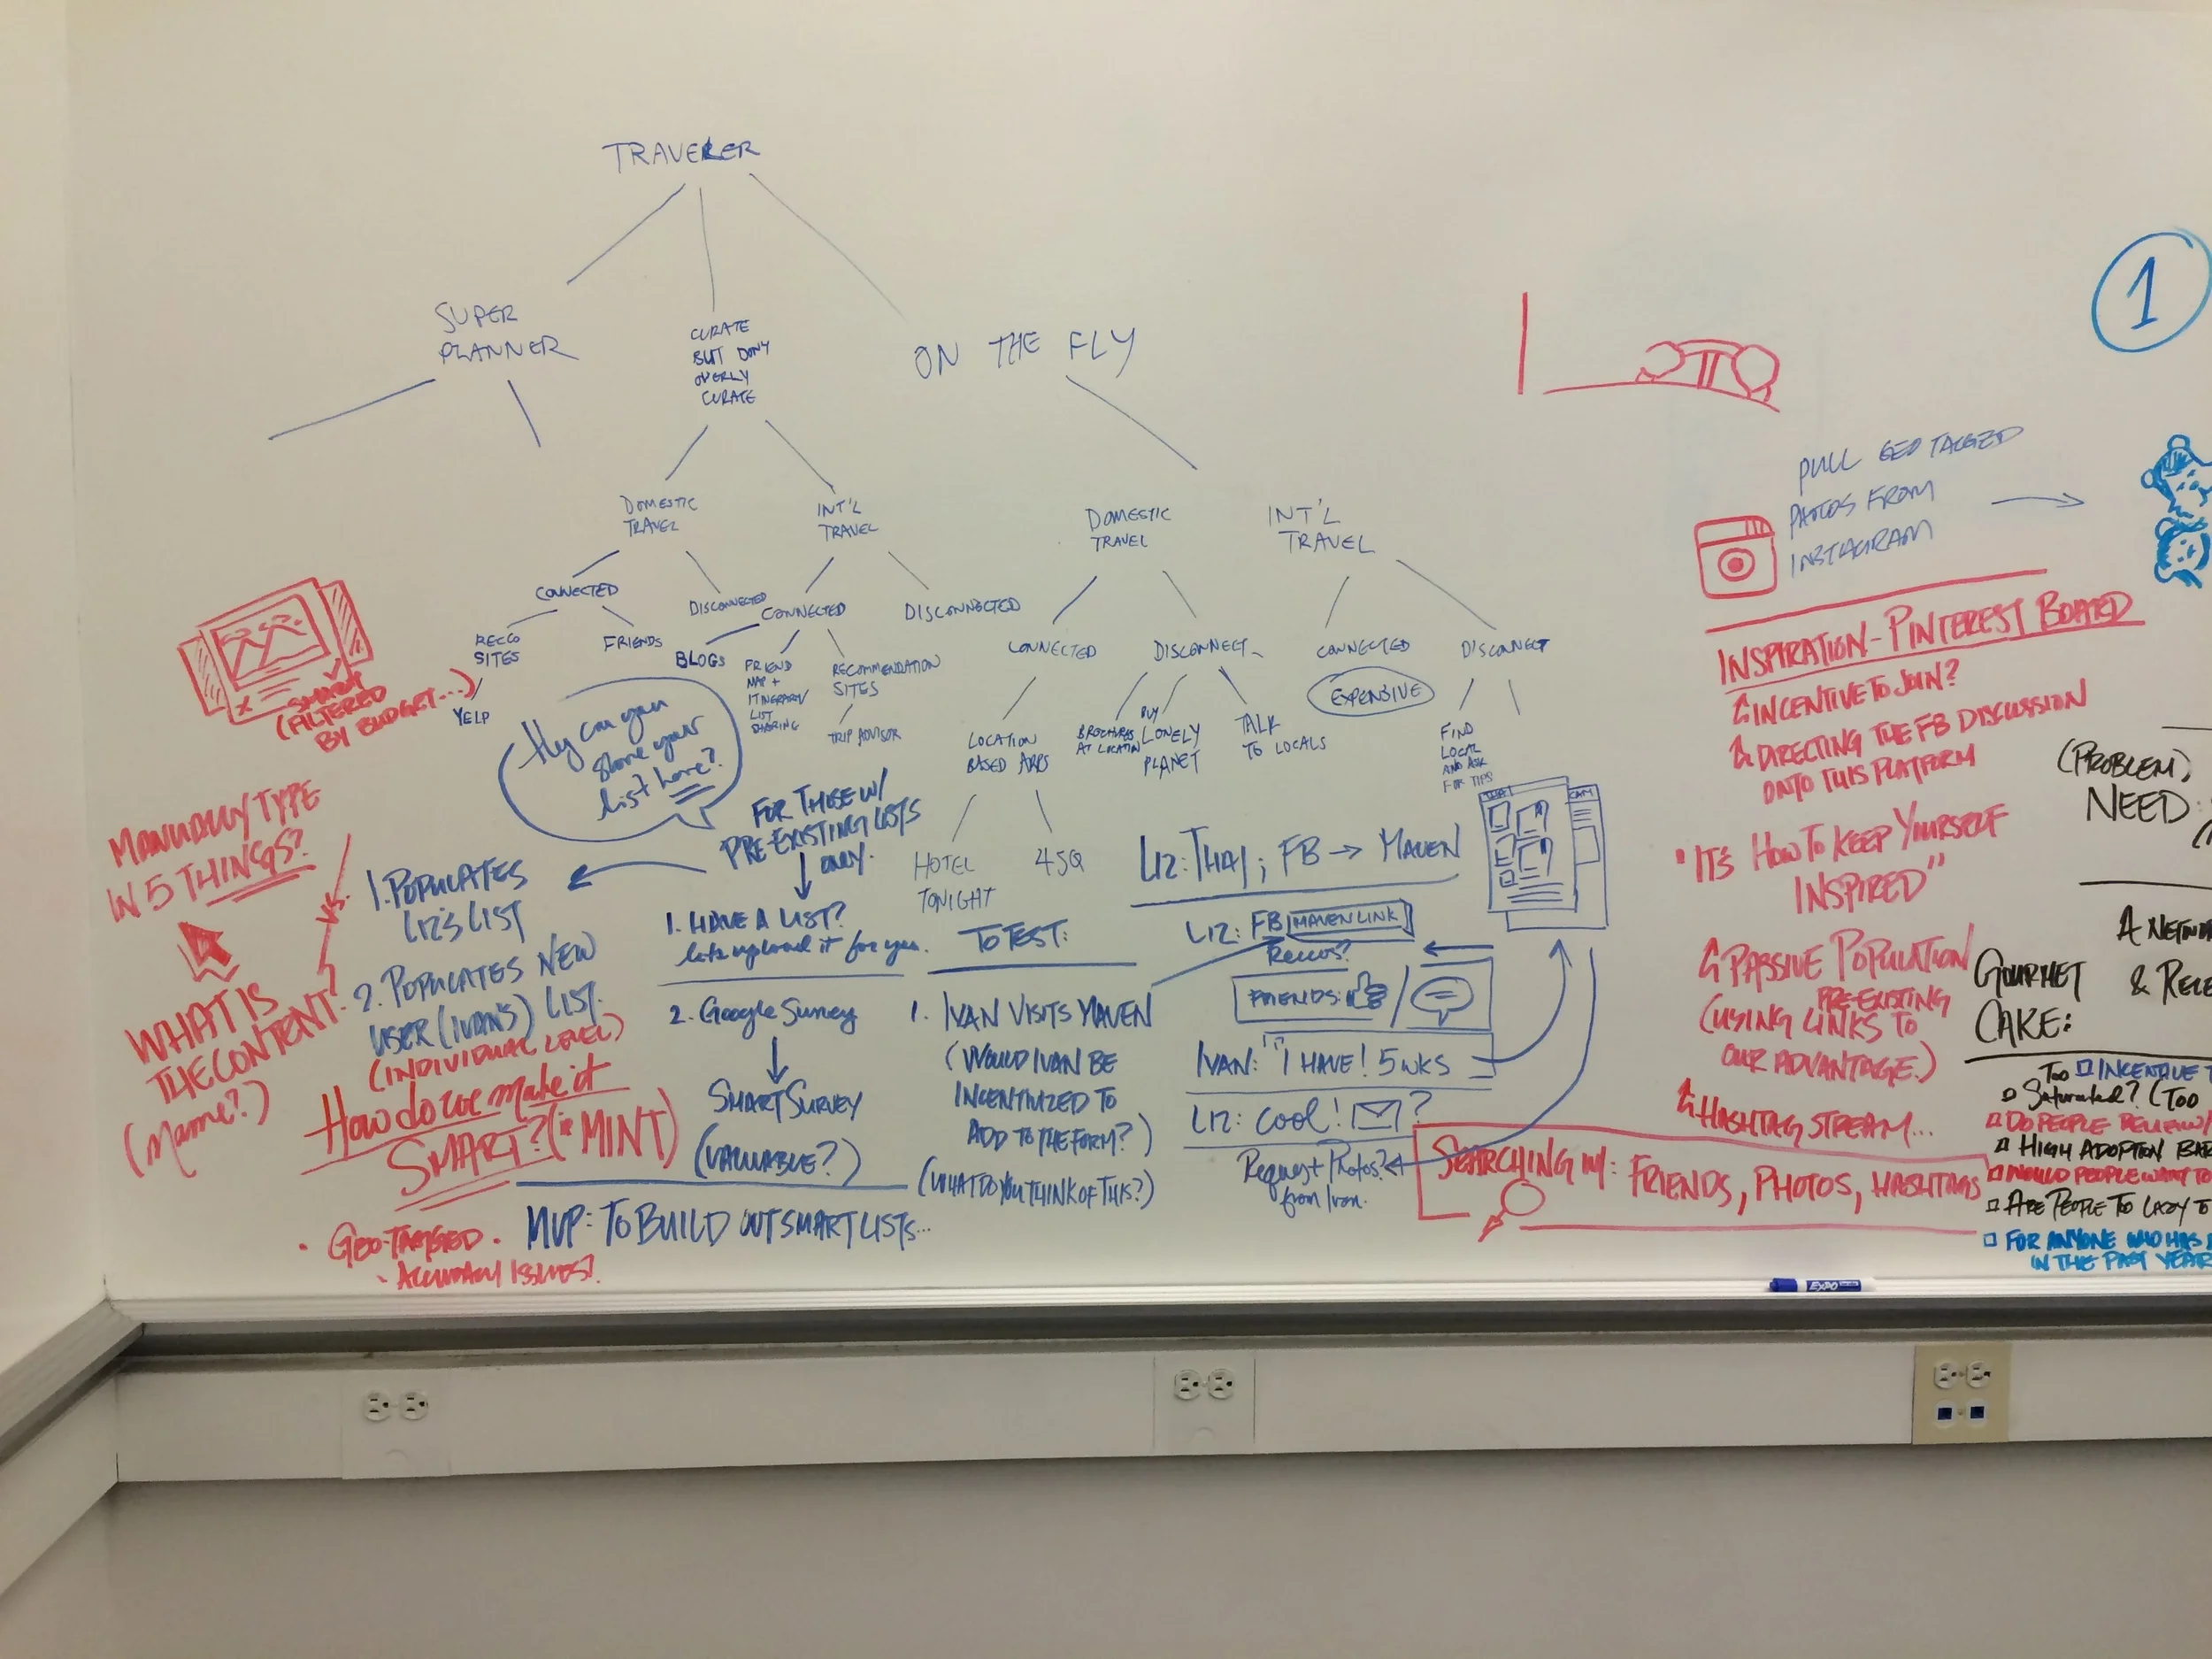 TRAVELER
SUPER
PLANNER
CURATE
BUT DON'T
OVERLY
CURATE
ON THE FLY
DOMESTIC
TRAVEL
INT'L
TRAVEL
DOMESTIC
TRAVEL
INT'L
TRAVEL
CONNECTED
DISCONNECTED
CONNECTED
DISCONNECTED
CONNECTED
DISCONNECT
CONNECTED
EXPENSIVE
DISCONNECT
RECCO
SITES
YELP
FRIENDS
BLOGS
FRIEND
MAP +
ITINERARY/
LIST
SHARING
RECOMMENDATION
SITES
TRIP ADVISOR
LOCATION
BASED APPS
HOTEL
TONIGHT
4SQ
BROCHURES
AT LOCATION
BUY
LONELY
PLANET
TALK
TO LOCALS
FIND
LOCAL
AND ASK
FOR TIPS
(FILTERED
BY BUDGET...)
Hey can you
share your
list here?
MANUALLY TYPE
IN 5 THINGS?
VS.
WHAT IS
THE CONTENT?
(Name?)
FOR THOSE W/
PRE-EXISTING LISTS
ONLY.
1. POPULATES
LIZ'S LIST
2. POPULATES NEW
USER (IVAN'S) LIST.
(INDIVIDUAL LEVEL)
How do we make it
SMART? (MINT)
· GEO-TAGGED.
- ACCURACY ISSUES?
1. HAVE A LIST?
lets upload it for you.
2. Google Survey
SMART SURVEY
(VALUABLE?)
MVP: TO BUILD OUT SMART LISTS...
TO TEST:
1. IVAN VISITS MAVEN
(WOULD IVAN BE
INCENTIVIZED TO
ADD TO THE FORM?)
(WHAT DO YOU THINK OF THIS?)
LIZ: THAI; FB → MAVEN
LIZ: FB MAVEN LINK
Reccos?
FRIENDS: /
IVAN: "I HAVE! 5 WKS
LIZ: COOL! ?
Request Photos?
from Ivan.
SEARCHING W/: FRIENDS, PHOTOS, HASHTAGS
1
PULL GEO TAGGED
PHOTOS FROM
INSTAGRAM
INSPIRATION - PINTEREST BOARD
INCENTIVE TO JOIN?
DIRECTING THE FB DISCUSSION
ONTO THIS PLATFORM
"IT'S HOW TO KEEP YOURSELF
INSPIRED"
PASSIVE POPULATION
(USING PRE-EXISTING LINKS TO
OUR ADVANTAGE.)
HASHTAG STREAM...
(PROBLEM)
NEED:
A
GOURMET
CAKE:
&
TOO
SATURATED? (TOO
INCENTIVE
DO PEOPLE
HIGH ADOPTION
WOULD PEOPLE WANT TO
ARE PEOPLE TO LAZY TO
FOR ANYONE WHO HAS
IN THE PAST YEAR
EXPO